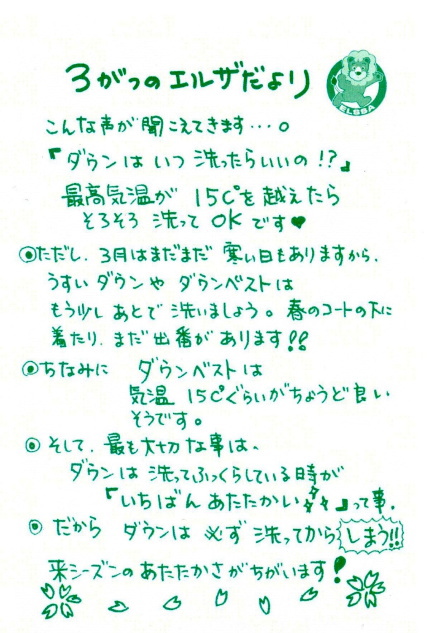 3がつのエルザだより
ELSSA
こんな声が聞こえてきます…。
『ダウンはいつ洗ったらいいの!?』
最高気温が 15℃を越えたら
そろそろ 洗って OKです♥
◉ただし、3月はまだまだ 寒い日もありますから、
うすい ダウンや ダウンベストは
もう少し あとで 洗いましょう。春のコートの下に
着たり、まだ出番があります!!
◉ちなみに ダウンベストは
気温 15℃ぐらいがちょうど良い
そうです。
◉そして、最も大切な事は、
ダウンは 洗ってふっくらしている時が
『いちばん あたたかい』って事。
◉だから ダウンは 必ず 洗ってから しまう!!
来シーズンの あたたかさがちがいます!